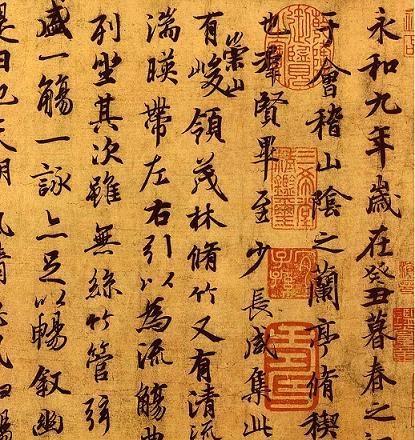 永和九年歲在癸丑暮春之初
于會稽山陰之蘭亭脩稧
也羣賢畢至少長咸集此
有崇山峻領茂林脩竹又有清流
湍暎帶左右引以為流觴曲
列坐其次雖無絲竹管弦
盛一觴一詠亦足以暢敘幽
是日也天朗氣清惠風和暢
三希堂精鑑璽
宜子孫